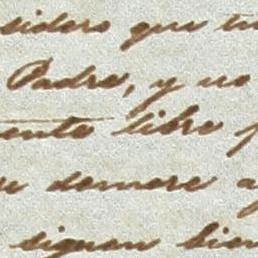 sidero que tu
Padre, y no
ente libre p
e demore a
siguen bien